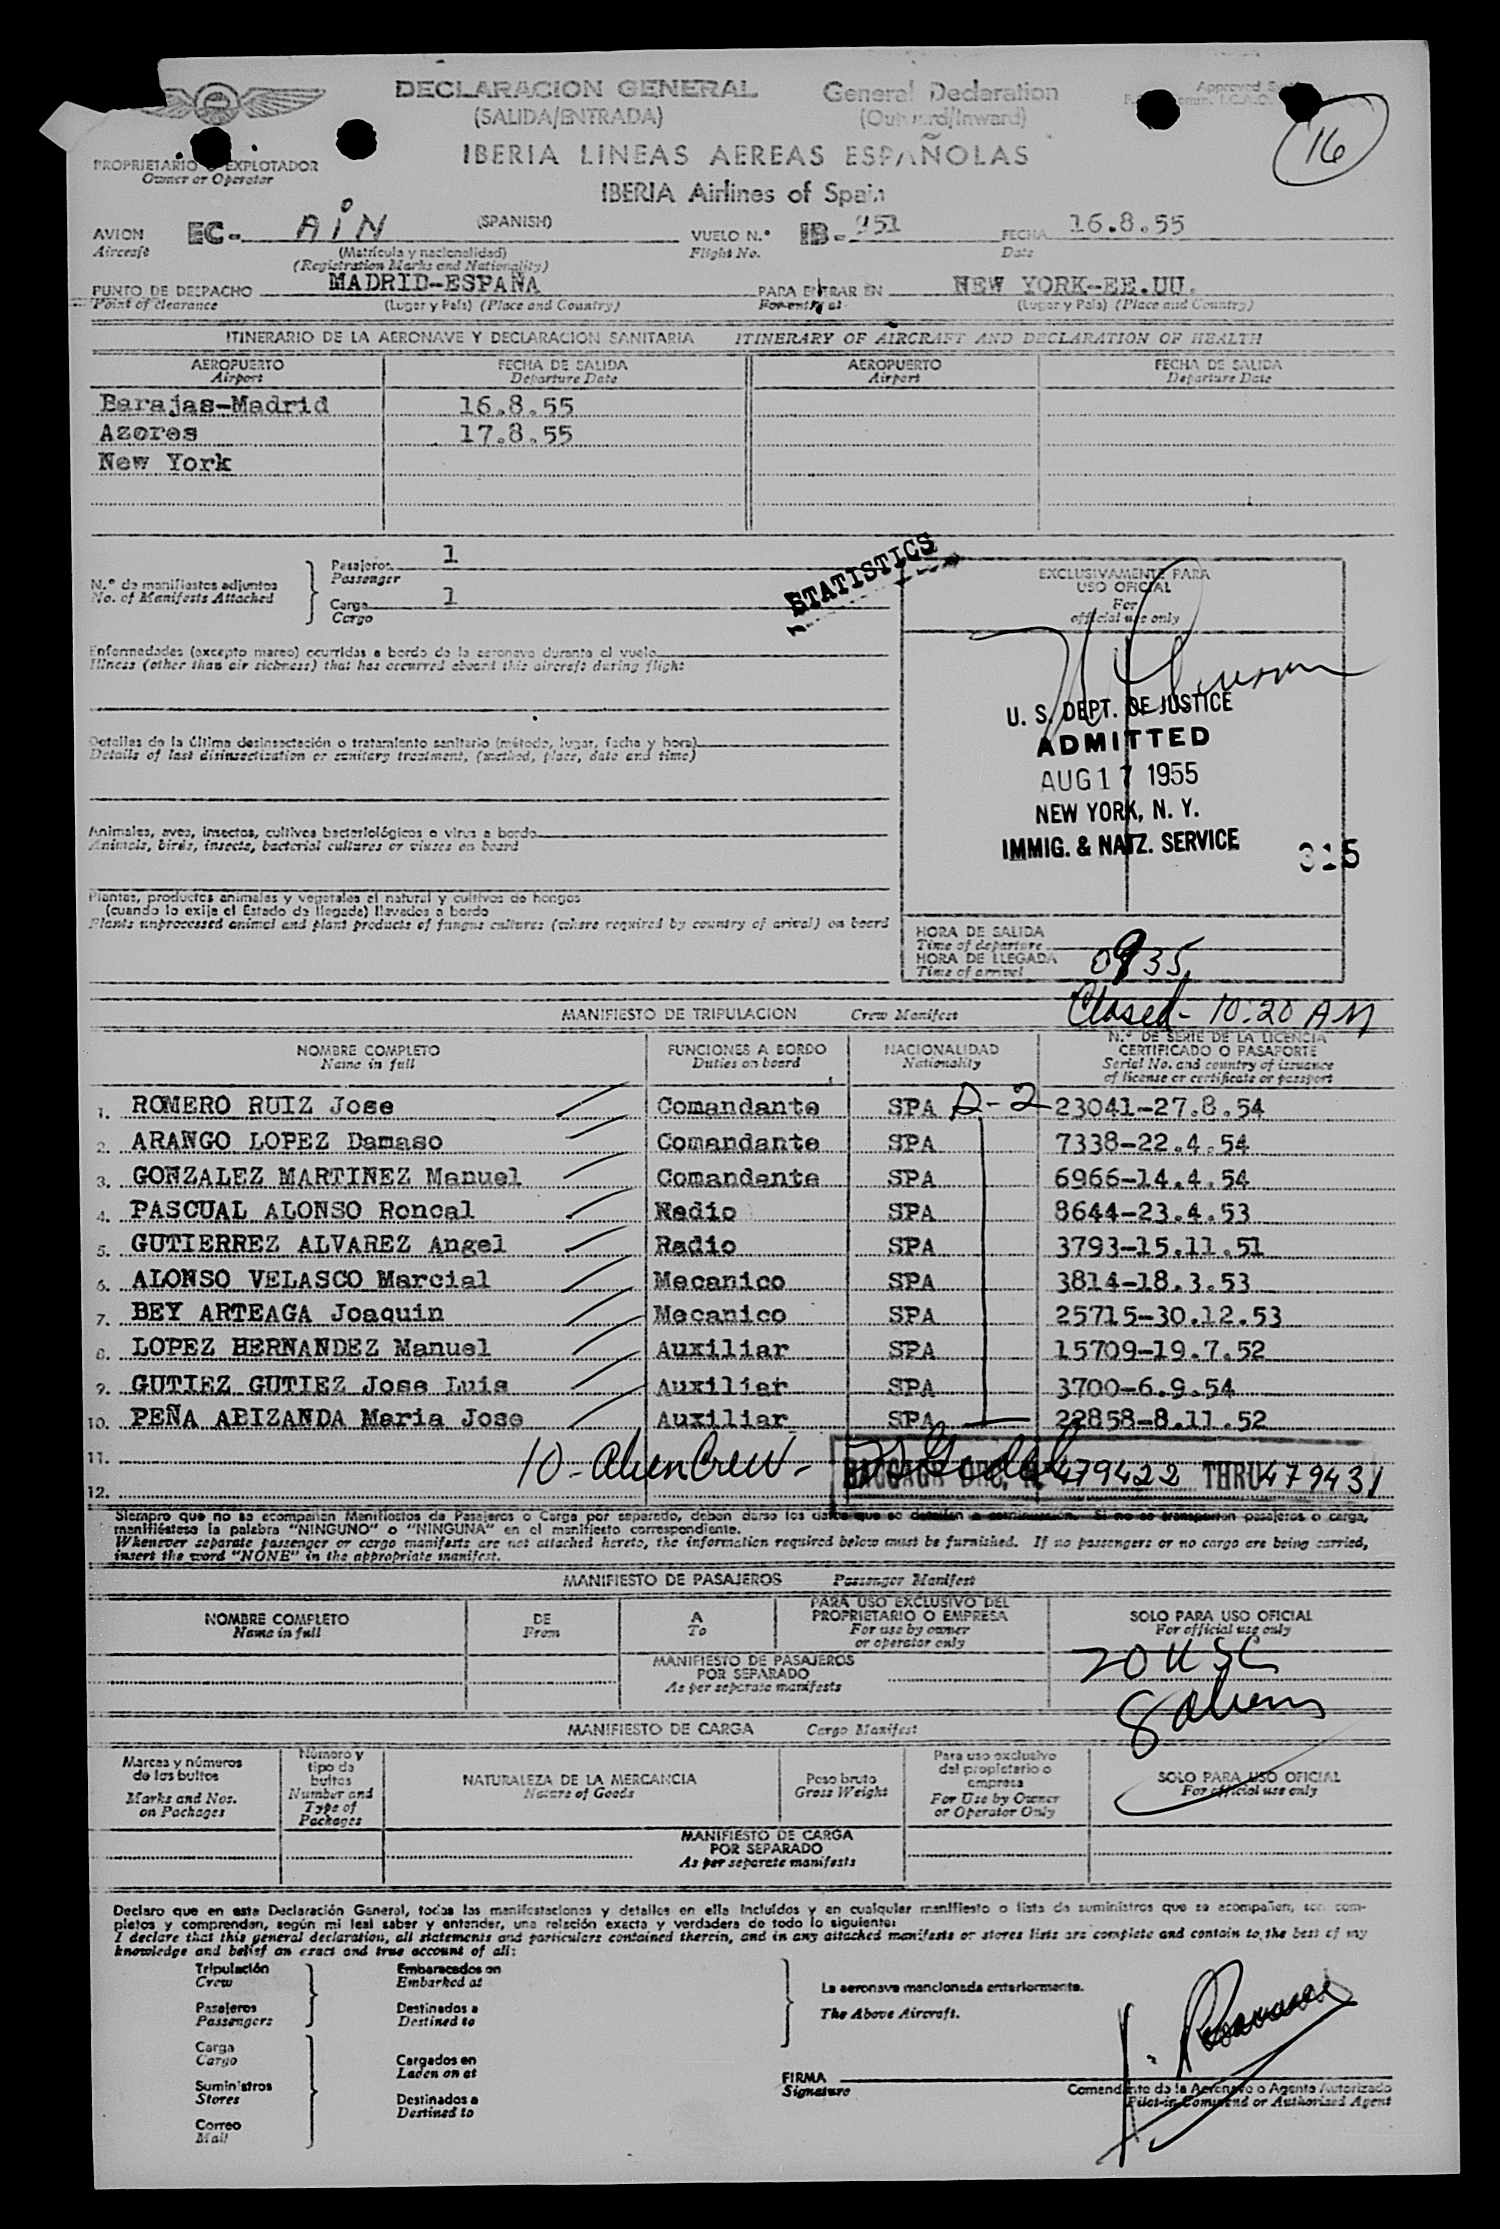 DECLARACION GENERAL General Declaration
(SALIDA/ENTRADA) (Outward/Inward)
Approved
16
IBERIA LINEAS AEREAS ESPAÑOLAS
IBERIA Airlines of Spain
PROPRIETARIO O EXPLOTADOR
Owner or Operator
AVION EC- AiN (SPANISH) VUELO N.º IB-951 FECHA 16.8.55
Aircraft (Matrícula y nacionalidad) Flight No. Date
(Registration Marks and Nationality)
PUNTO DE DESPACHO MADRID-ESPAÑA PARA ENTRAR EN NEW YORK-EE.UU.
Point of clearance (Lugar y País) (Place and Country) For entry at (Lugar y País) (Place and Country)
ITINERARIO DE LA AERONAVE Y DECLARACION SANITARIA ITINERARY OF AIRCRAFT AND DECLARATION OF HEALTH
AEROPUERTO FECHA DE SALIDA AEROPUERTO FECHA DE SALIDA
Airport Departure Date Airport Departure Date
Barajas-Madrid 16.8.55
Azores 17.8.55
New York
N.º de manifiestos adjuntos Pasajeros 1
No. of Manifests Attached Passenger
Carga 1
Cargo
STATISTICS
EXCLUSIVAMENTE PARA
USO OFICIAL
For
official use only
Enfermedades (excepto mareo) ocurridas a bordo de la aeronave durante el vuelo
Illness (other than air sickness) that has occurred aboard this aircraft during flight
U. S. DEPT. OF JUSTICE
ADMITTED
AUG 17 1955
NEW YORK, N. Y.
IMMIG. & NATZ. SERVICE
315
Detalles de la última desinsectación o tratamiento sanitario (método, lugar, fecha y hora)
Details of last disinsectization or sanitary treatment, (method, place, date and time)
Animales, aves, insectos, cultivos bacteriológicos o virus a bordo
Animals, birds, insects, bacterial cultures or viuses on board
Plantas, productos animales y vegetales al natural y cultivos de hongos
(cuando lo exija el Estado de llegada) llevados a bordo
Plants unprocessed animal and plant products of fungus cultures (where required by country of arival) on board
HORA DE SALIDA
Time of departure
HORA DE LLEGADA 0935
Time of arrival
Closed - 10:20 AM
MANIFIESTO DE TRIPULACION Crew Manifest
NOMBRE COMPLETO FUNCIONES A BORDO NACIONALIDAD N.º DE SERIE DE LA LICENCIA
Name in full Duties on board Nationality CERTIFICADO O PASAPORTE
Serial No. and country of issuance
of license or certificate or passport
1. ROMERO RUIZ Jose Comandante SPA D-2 23041-27.8.54
2. ARANGO LOPEZ Damaso Comandante SPA 7338-22.4.54
3. GONZALEZ MARTINEZ Manuel Comandante SPA 6966-14.4.54
4. PASCUAL ALONSO Roncal Radio SPA 8644-23.4.53
5. GUTIERREZ ALVAREZ Angel Radio SPA 3793-15.11.51
6. ALONSO VELASCO Marcial Mecanico SPA 3814-18.3.53
7. BEY ARTEAGA Joaquin Mecanico SPA 25715-30.12.53
8. LOPEZ HERNANDEZ Manuel Auxiliar SPA 15709-19.7.52
9. GUTIEZ GUTIEZ Jose Luis Auxiliar SPA 3700-6.9.54
10. PEÑA ABIZANDA Maria Jose Auxiliar SPA 22858-8.11.52
11.
10 - alien Crew - BAGGAGE DEC. 479422 THRU 479431
12.
Siempre que no se acompañen Manifiestos de Pasajeros o Carga por separado, deben darse los datos que se detallan a continuación. Si no se transportan pasajeros o carga,
manifiéstese la palabra "NINGUNO" o "NINGUNA" en el manifiesto correspondiente.
Whenever separate passenger or cargo manifests are not attached hereto, the information required below must be furnished. If no passengers or no cargo are being carried,
insert the word "NONE" in the appropriate manifest.
MANIFIESTO DE PASAJEROS Passenger Manifest
NOMBRE COMPLETO DE A PARA USO EXCLUSIVO DEL SOLO PARA USO OFICIAL
Name in full From To PROPRIETARIO O EMPRESA For official use only
For use by owner
or operator only
MANIFIESTO DE PASAJEROS
POR SEPARADO
As per separate manifests
20 USC
8 aliens
MANIFIESTO DE CARGA Cargo Manifest
Marcas y números
de los bultos
Marks and Nos.
on Packages
Número y
tipo de
bultos
Number and
Type of
Packages
NATURALEZA DE LA MERCANCIA
Nature of Goods
Peso bruto
Gross Weight
Para uso exclusivo
del propietario o
empresa
For Use by Owner
or Operator Only
SOLO PARA USO OFICIAL
For official use only
MANIFIESTO DE CARGA
POR SEPARADO
As per separate manifests
Declaro que en esta Declaración General, todas las manifestaciones y detalles en ella incluídos y en cualquier manifiesto o lista de suministros que se acompañen, son com-
pletos y comprenden, según mi leal saber y entender, una relación exacta y verdadera de todo lo siguiente:
I declare that this general declaration, all statements and particulars contained therein, and in any attached manifests or stores lists are complete and contain to the best of my
knowledge and belief an exact and true account of all:
Tripulación Embarcados en
Crew Embarked at
Pasajeros Destinados a
Passengers Destined to
La aeronave mencionada anteriormente.
The Above Aircraft.
Carga Cargados en
Cargo Laden on at
Suministros Destinados a
Stores Destined to
Correo
Mail
FIRMA
Signature
Comandante de la Aeronave o Agente Autorizado
Pilot-in Command or Authorised Agent